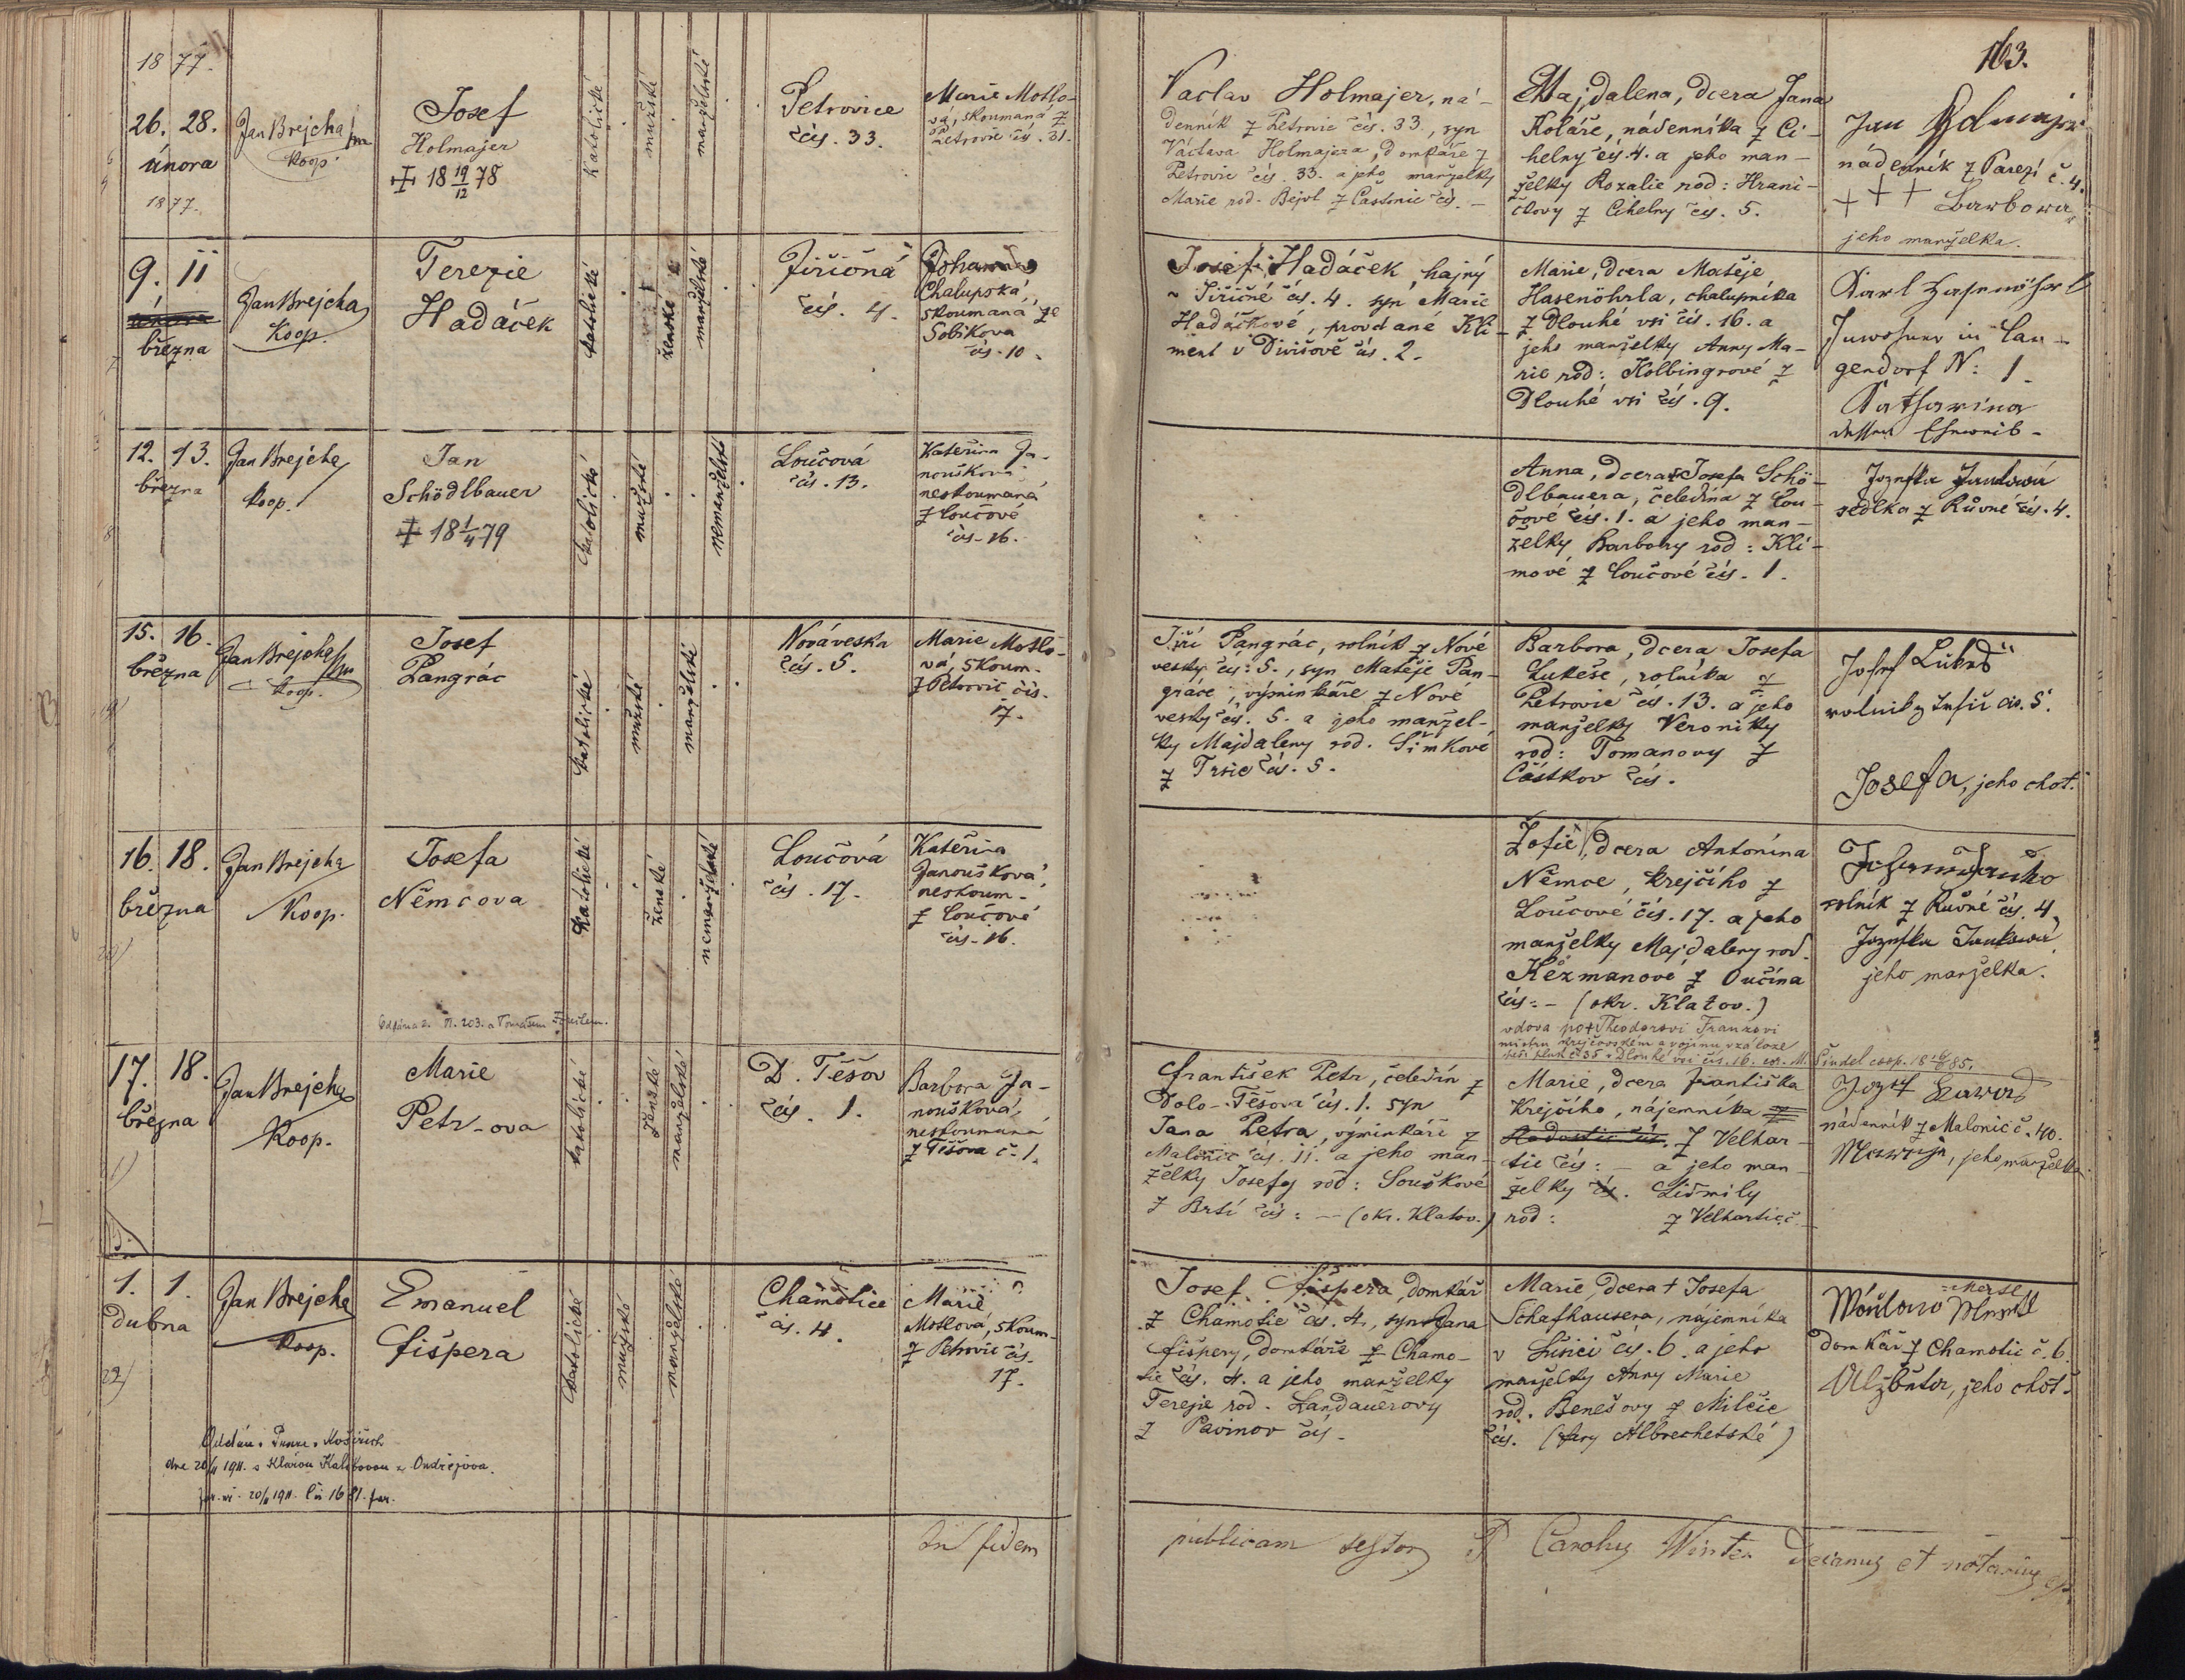 163.
1877.
26. 28.
února
1877.
Jan Brejcha
Koop.
Josef
Holmajer
18 19/12 78
katolické
mužské
manželské
Petrovice
čís. 33.
Marie Motlo-
vá, skoumaná z
Petrovic čís. 31.
Vaclav Holmajer, ná-
denník z Petrovic čís. 33, syn
Václava Holmajera, domkáře z
Petrovic čís. 33. a jeho manželky
Marie rod. Bejvl z Častonic čís. -
Majdalena, dcera Jana
Koláře, nádenníka z Ci-
helny čís. 4. a jeho man-
želky Rozalie rod: Hrani-
čkovy z Cihelny čís. 5.
Jan Holmajer
nádenník z Parezí č. 4.
+ + + Barbora
jeho manželka.
9. 11
března
Jan Brejcha
Koop.
Terezie
Hadáček
katolické
ženské
manželské
Jiřičná
čís. 4.
Johanna
Chalupská,
skoumaná ze
Sobikova
čís. 10.
Josef Hadáček, hajný
v Jiřičné čís. 4. syn Marie
Hadáčkové, provdané Kli-
ment v Divišově čís. 2.
Marie, dcera Matěje
Hasenöhrla, chalupníka
z Dlouhé vsi čís. 16. a
jeho manželky Anny Ma-
rie rod: Holbingrové z
Dlouhé vsi čís. 9.
Karl Hasenöhrl
Inwohner in Lan-
gendorf N: 1.
Katharina
dessen Eheweib-
12. 13.
března
Jan Brejcha
Koop.
Jan
Schödlbauer
18 1/4 79
katolické
mužské
nemanželské
Loučová
čís. 13.
Kateřina Ja-
noušková
neskoumaná
z Loučové
čís. 16.
Anna, dcera Josefa Schö-
dlbauera, čeledína z Lou-
čové čís. 1. a jeho man-
želky Barbory rod: Kli-
mové z Loučové čís. 1.
Jozefka Janková
sedlka z Růvné čís. 4.
15. 16.
března
Jan Brejcha
Koop.
Josef
Pangrác
katolické
mužské
manželské
Nováveska
čís. 5.
Marie Motlo-
vá, skoum.
z Petrovic čís.
17.
Jiří Pangrác, rolník z Nové
vesky čís: 5., syn Matěje Pan-
gráce, výminkáře z Nové
vesky čís. 5. a jeho manžel-
ky Majdaleny rod. Šimkové
z Trsic čís. 5.
Barbora, dcera Josefa
Lukeše, rolníka z
Petrovic čís. 13. a jeho
manželky Veroniky
rod: Tomanovy z
Částkov čís.
Josef Lukeš
rolník z Trsic čís. 5.
Josefa, jeho choť.
16. 18.
března
Jan Brejcha
Koop.
Josefa
Němcova
katolické
ženské
nemanželské
Loučová
čís. 17.
Kateřina
Janoušková,
neskoum.
z Loučové
čís. 16.
Žofie, dcera Antonína
Němce, krejčího z
Loučové čís. 17. a jeho
manželky Majdaleny rod.
Kézmanové z Oučína
čís: - (okr. Klatov.)
vdova po + Theodorovi Frankovi
Johann Janko
rolník z Růvné čís. 4.
Jozefka Janková
jeho manželka.
17. 18.
března
Jan Brejcha
Koop.
Marie
Petr-ova
katolické
ženské
manželské
D. Těšov
čís. 1.
Barbora Ja-
noušková,
neskoumaná
z Těšova č. 1.
František Petr, čeledín z
Dolo-Těšova čís. 1. syn
Jana Petra, výminkáře z
Malonic čís. 11. a jeho man-
želky Josefy rod: Souškové
z Brtí čís: - (okr. Klatov.)
Marie, dcera Františka
Krejčího, nájemníka
z Velhar-
tic čís: - a jeho man-
želky Lidmily
rod: z Velhartic č. -
Jozef
nádenník z Malonic č. 40.
jeho manželka.
1. 1.
dubna
22)
Jan Brejcha
Koop.
Emanuel
Fišpera
katolické
mužské
manželské
Chamotice
čís. 4.
Marie
Motlova, skoum.
z Petrovic čís.
17.
Josef Fišpera, domkář
z Chamotic čís. 4., syn Jana
Fišpery, domkáře z Chamo-
tic čís. 4. a jeho manželky
Terezie rod. Landauerovy
z Pavinov čís.
Marie, dcera + Josefa
Schafhausera, nájemníka
v Sušici čís. 6. a jeho
manželky Anny Marie
rod. Benešovy z Milčic
čís. (fary Albrechetské)
domkář z Chamotic č. 6.
Alžběta, jeho choť.
dne 20/11 1911. s Klárou z Ondřejova.
In fidem
publicam testor P Carolus Winter Decanus et notarius